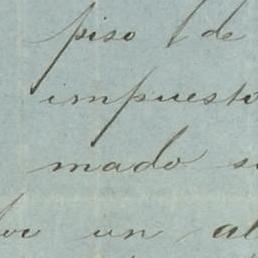 piso / de
impuesto
mado s
un al